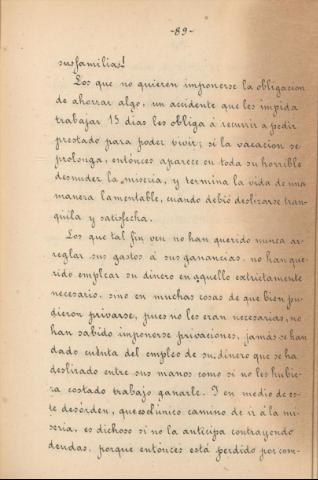 -89-
sus familias!
Los que no quieren imponerse la obligacion
de ahorrar algo, un accidente que les impida
trabajar 15 dias les obliga á recurrir a pedir
prestado para poder vivir; si la vacacion se
prolonga, entónces aparece en toda su horrible
desnudez la miseria, y termina la vida de una
manera lamentable, cuando debió deslizarse tran-
quila y satisfecha.
Los que tal fin ven no han querido nunca ar-
reglar sus gastos á sus ganancias. no han que-
rido emplear su dinero en aquello extrictamente
necesario, sino en muchas cosas de que bien pu-
dieron privarse, pues no les eran necesarias, no
han sabido imponerse privaciones, jamás se han
dado cuenta del empleo de su dinero que se ha
deslizado entre sus manos como si no les hubie-
ra costado trabajo ganarle. I en medio de es-
te desórden, que es el único camino de ir á la mi-
seria, es dichoso si no la anticipa contrayendo
deudas, porque entónces está perdido por com-